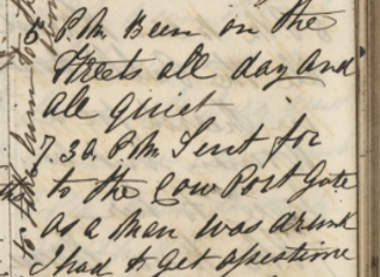 5 P.M. Been on the
Streets all day and
all quiet
7.30. P.M. Sent for
to the Cow Port Gate
as a man was drunk
I had to get